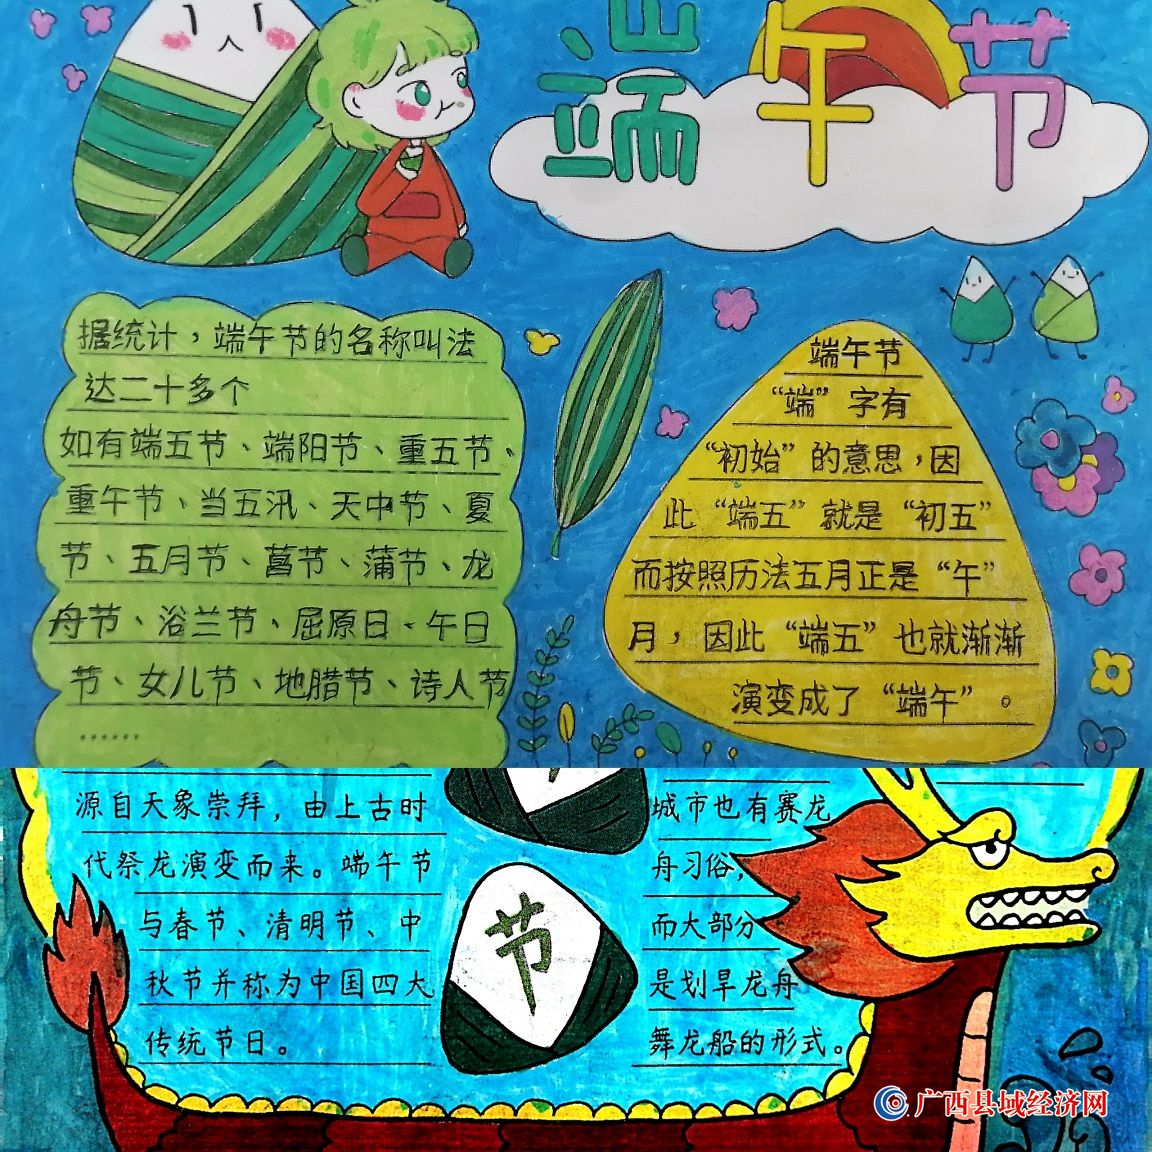 端午节
据统计，端午节的名称叫法
达二十多个
如有端五节、端阳节、重五节、
重午节、当五汛、天中节、夏
节、五月节、菖节、蒲节、龙
舟节、浴兰节、屈原日、午日
节、女儿节、地腊节、诗人节
……
端午节
“端”字有
“初始”的意思，因
此“端五”就是“初五”
而按照历法五月正是“午”
月，因此“端五”也就渐渐
演变成了“端午”。
源自天象崇拜，由上古时
代祭龙演变而来。端午节
与春节、清明节、中
秋节并称为中国四大
传统节日。
节
城市也有赛龙
舟习俗，
而大部分
是划旱龙舟
舞龙船的形式。
广西县域经济网